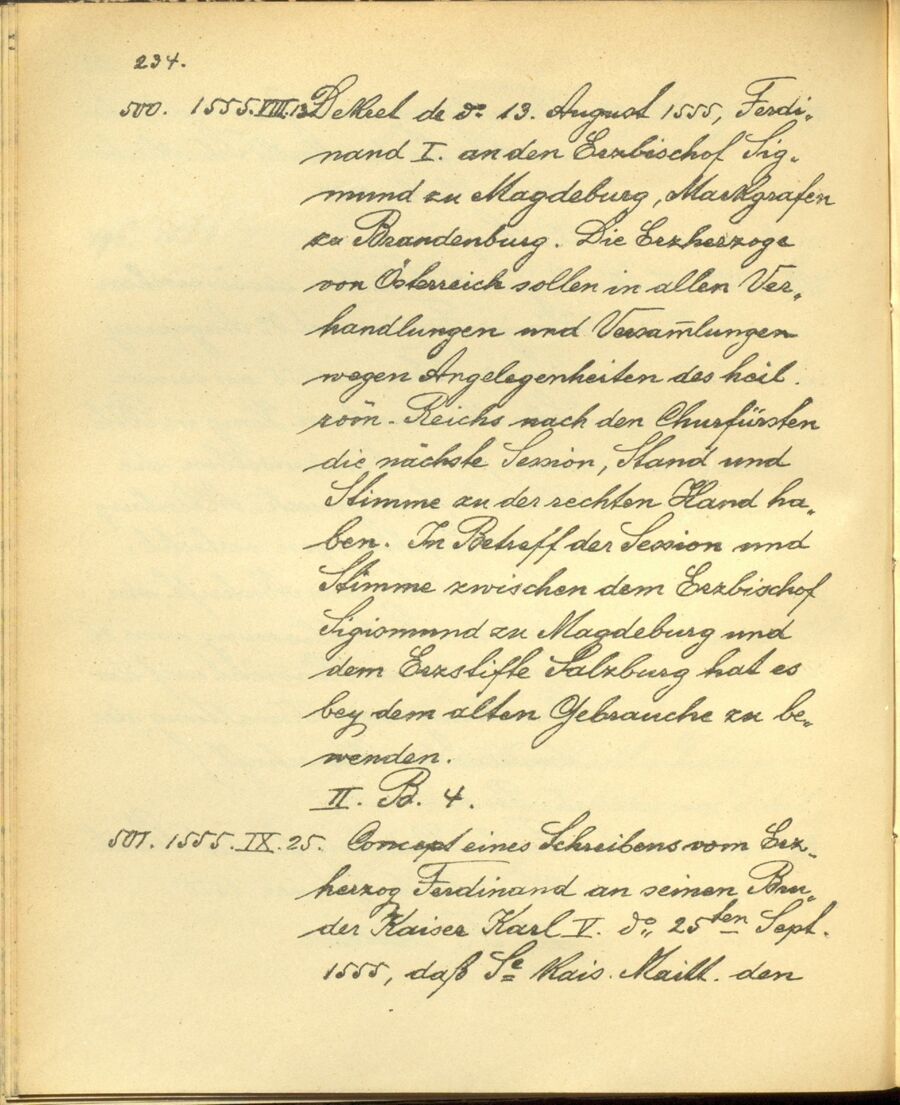 234.
500. 1555.VIII.13 Dekret de do 13. August 1555, Ferdi„
nand I. an den Erzbischof Sig„
mund zu Magdeburg, Markgrafen
zu Brandenburg. Die Erzherzoge
von Österreich sollen in allen Ver„
handlungen und Versam̄lungen
wegen Angelegenheiten des heil.
röm̄. Reichs nach den Churfürsten
die nächste Session, Stand und
Stimme zu der rechten Hand ha„
ben. In Betreff der Session und
Stimme zwischen dem Erzbischof
Sigismund zu Magdeburg und
dem Erzstifte Salzburg hat es
bey dem alten Gebrauche zu be„
wenden.
II. B. 4.
501. 1555.IX.25. Concept eines Schreibens vom Erz„
herzog Ferdinand an seinen Bru„
der Kaiser Karl V. do„ 25ten Sept.
1555, daß Se Kais. Maitt. den